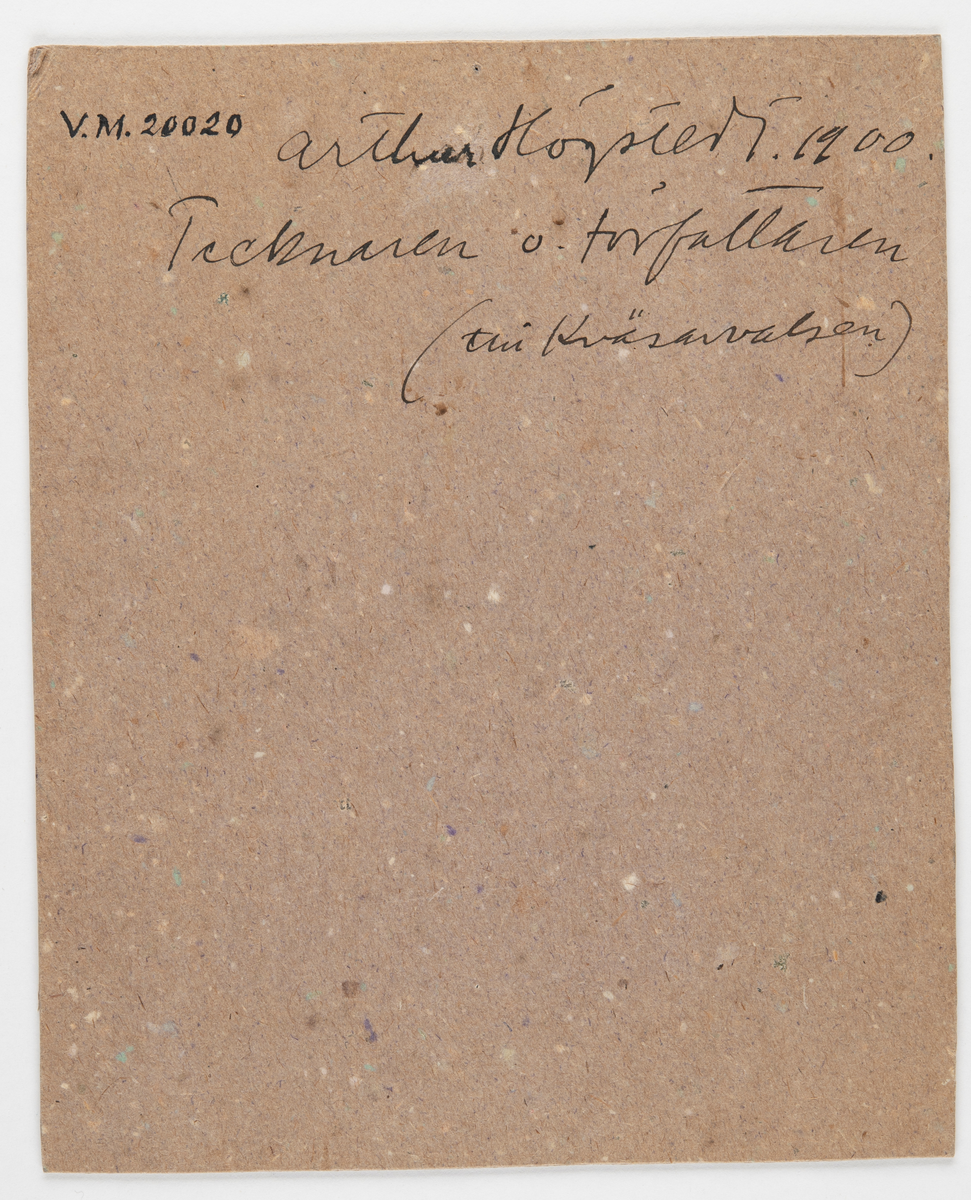 V.M. 20020
Arthur Högstedt. 1900.
Tecknaren o. författaren
(till Kväsarvalsen)